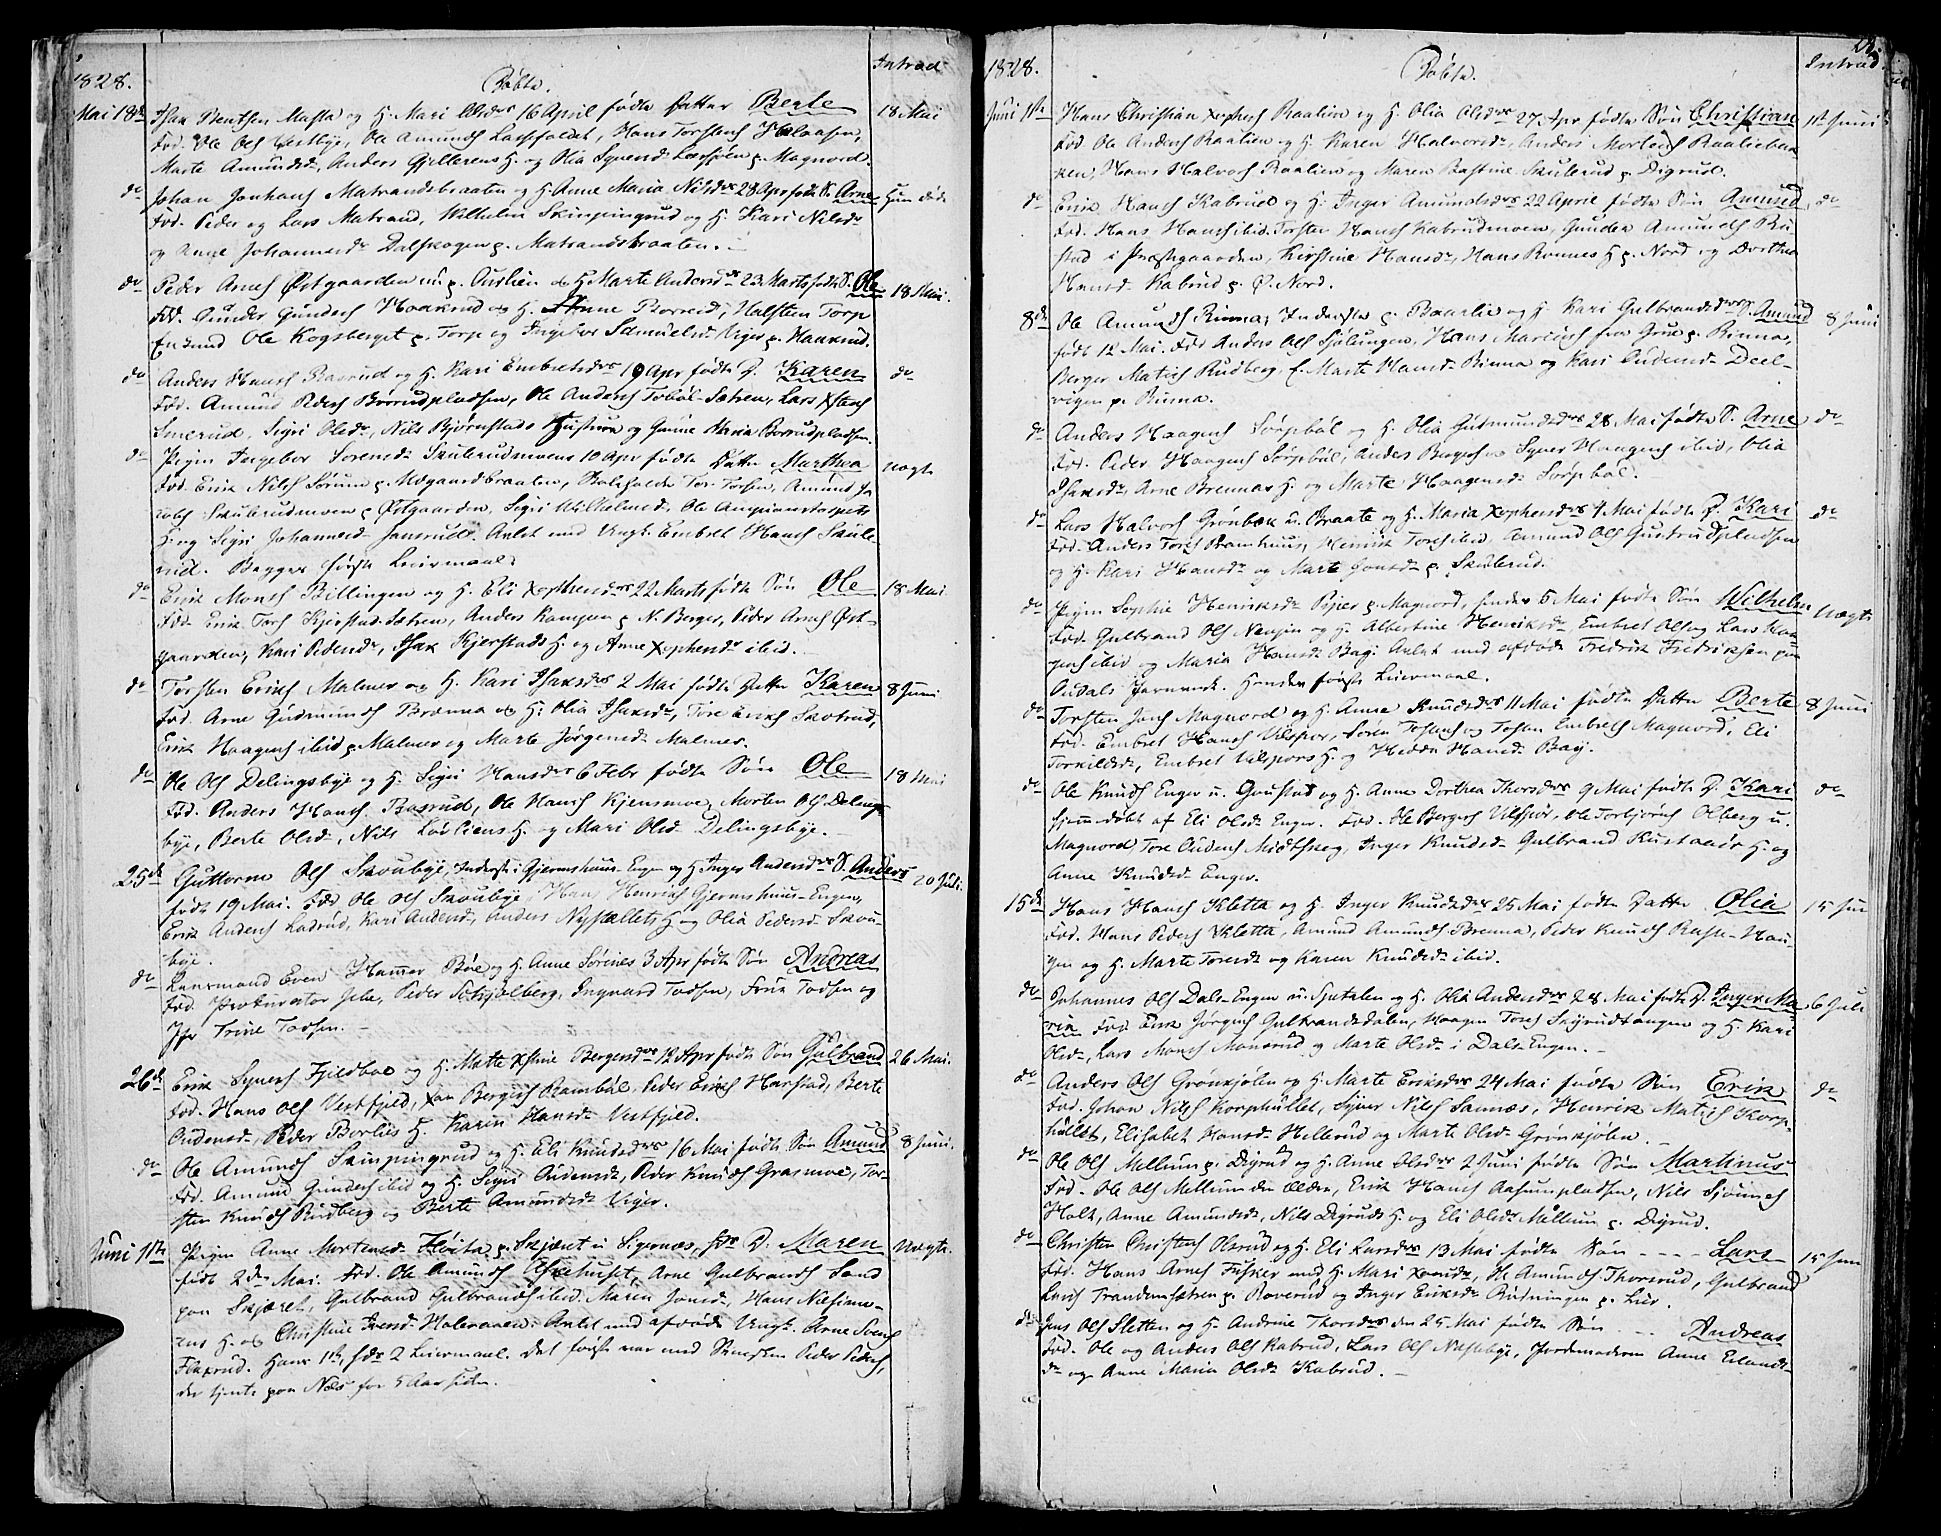 1828. Döbte. Introd
Mai 18de Isak Bentsen Masta og H. Mari Olsdr 16 April födte Datter Berte 18 Mai
Fad. Ole Ols Vestbye, Ole Amunds Hans Torstens
Marte Amundsdr, Anders Gjellerens H. og Olia Syversd p. Magnord.
do Johan Jonhans Matrandsbraaten og H. Anne Maria Nilsdr 28 Apr födte S. Arne Hun döde
Fad. Peder og Lars Matrand, Wilhelm Skinpingrud og H. Kari Nilsdr
og Anne Johannesdr Dalskogen p. Matrandsbraaten.
do Peder Arnes Östgaarden p. Aurlien og H. Marte Andersdr 23 Marts födte S. Ole 18 Mai.
Fad. Gunder Gunders Haakrud og H. Anne Halsten Torp
Ole Kogsberget p. Torp og Ingebor Samuelsdr Viger p. Haakrud.
do Anders Hans Basrud og H. Kari Embretsdr 19 Apr födte D. Karen do
Fad. Amund Peders Börrudpladsen, Ole Anders Toböl-Sætren, Lars Xstens
Smerud, Sigri Olsdr, Nils Björnstads Hustrue og Gunine Maria Borrudpladsen.
do Pigen Ingebor Sorensdr Skulerudmoens 10 Apr födte Datter Marthea nægte
Fad. Erik Nils Sorum p. Mogaardbraaten, Tor Torsen, Amund Ja
cobs Skulerudmoen p. Östgaarden, Sigri Wilhelmsd, Ole
H. og Sigri Johannesd Jansrud. Avlet med Ungk. Embret Hans Skule
rud. Begges förste Leiermaal.
do Erik Mons Billingen og H. Eli Xophersdr 22 Marts födte Sön Ole 18 Mai.
Fad. Erik Tors Kjerstad-Sætren, Anders Kampen p. N. Berger, Peder Arnes Öst-
gaarden, Kari Pedersdr, Isak Kjerstads H. og Anne Xophersdr ibid.
do Torsten Eriks Malmer og H. Kari Isaksdr 2 Mai födte Datter Karen 8 Juni
Fad. Arne Gudmunds Brænna og H. Olia Isaksdr, Tore Eriks Skotrud,
Erik Haagens ibid p. Malmer og Marte Jörgensd Malmer.
do Ole Ols Delingsbye og H. Sigri Hansdr 6 Febr födte Sön Ole 18 Mai
Fad. Anders Hans Basrud, Ole Hans Kjensmoe, Morten Ols Delings-
bye, Berte Olsd, Nils Lövliens H. og Mari Olsd Delingsbye.
25de Guttorm Ols Skoubye, Inderst i Gjermshuus-Enger og H. Inger Andersdr S. Anders 20 Juli.
födt 19 Mai. Fad Ole Ols Skoubye, Hans Henrics Gjermshuus-Engen,
Erik Anders Ladrud, Kari Andersd, Anders Nysællets H. og Olia Pedersd Skou-
bye.
do Lensmand Even Hammer Böe og H. Anne Sörines 3 Apr födte Sön Andreas
Fad. Prokurator Peder Schjölberg, Ingvard Todsen, Frue Todsen og
Jfr Trine Todsen.
26de Erik Syvers Fjeldböe og H. Mette Xstine Bergersdr 12 Apr födte Sön Gulbrand 26 Mai.
Fad. Hans Ols Vestfjeld, Xan Bergers Ramböl, Peder Eriks Harstad, Berte
Audensd, Peder Borlies H. Karin Hansdr Vestfjeld.
do Ole Amunds Skinpingrud og H. Eli Knudsdr 16 Mai födte Sön Amund 8 Juni.
Fad. Amund Gunders ibid og H. Sigri Audensdr, Peder Knuds Grasmoe, Tor-
sten Knuds Rudberg og Berte Amundsdr Viger.
Juni 1ste Pigen Anne Mortensd Flöita p. Skjæret u. Sigernæs, D. Maren Nægte.
födt 2den Mai. Fad. Ole Amunds Askehuset, Arne Gulbrands Sand
paa Skjæret, Gulbrand Gulbrands ibid. Maren Jonsd, Hans
H. og Christine Iversd Halvaaen. Avlet med afdöde Ungk. Arne Svens
Flaxrud. Hans 1ste, 2 Leiermaal. Det förste var med Peder Peders
der tjente paa Næs for 5 Aar siden.

1828. Döbte. Introd.
Juni 1ste Hans Christian Xophers Raalien og H. Olia Olsdr 27 Apr födte Sön Christian 1ste Juni
Fad. Ole Anders Raalien og H. Karen Halvorsdr, Anders Mortens Raaliebak
ken, Hans Halvors Raalien og Maren Bastine Skulerud p. Digrud.
do Erik Hans Kabrud og H. Inger Amundsdr 22 April födte Sön Amund do
Fad. Hans Hans ibid. Torsten Hans Kabrudmoen, Gunder Amunds Ru
stad i Præstgaarden, Kirstine Hansdr, Hans Romnes H. p. Nord og Dorthea
Hansdr Kabrud p. Ö. Nord.
8de Ole Amunds Rinna, Inderste p. Baarlie og H. Kari Gulbrandsdr S. Amund 8 Juni
födt 12 Mai. Fad Anders Ols Sjölungen, Hans Mariuss fra Grue p. Rinna,
Berger Matis Rudberg, E. Marte Hansd Rinna og Kari Audensd Deel-
vigen p. Rinna.
do Anders Haagens Sörpeböl og H. Olia Gutmundsdr 28 Mai födte S. Arne do
Fad. Peder Haagens Sörpeböl, Anders Bergers og Syver Haagens ibid, Olia
Isaksdr, Arne Brennas H. og Marte Haagensd Sörpeböl.
do Lars Halvors Grönbek u. Braate og H. Maria Xophersdr 4 Mai födte D. Kari do
Fad. Anders Tores Bramhuus, Henrik Tores ibid, Amund Ols Gustrudpladsen
og H. Kari Hansdr og Marte Jonsdr p. Skulerud.
do Pigen Sophie Henriksdr Piper p. Magnord, hendes 5 Mai födte Sön Wilhelm Nægte
Fad. Gulbrand Ols Nengin og H. Albertine Henriksdr, Embret Ols og Lars Haa
gens ibid og Maria Hansdr Bagi. Avlet med afdöde Fredrik Fredriksen paa
Oudals Jernverk. Hendes förste Leiermaal.
do Torsten Jons Magnord og H. Anne Knudsdr 11 Mai födte Datter Berte 8 Juni
Fad. Embret Hans Vilsper, Sören Tostens og Tosten Embrets Magnord, Eli
Torkildsd, Embret Vilspers H. og Hedda Hansd Bagi.
do Ole Knuds Enger u. Goustad og H. Anne Dorthea Thorsdr 9 Mai födte D. Kari do
hjemmedöbt af Eli Olsdr Enger. Fad. Ole Bergers Vilsper, Ole Torbjörns Olberg u.
Magnord Tore Audens Midtskog, Inger Knudsd Gulbrand Rustaders H. og
Anne Knudsd Enger.
15de Hans Hans Kletta og H. Inger Knudsdr 25 Mai födte Datter Olia 15 Jun
Fad. Hans Peders Kletta, Amund Amunds Brenna, Peder Knuds Raste-Hau-
gen og H. Marte Toresdr og Karen Knudsd ibid.
do Johannes Ols Dals-Engen u. Sjutalen og H. Olia Andersdr 28 Mai födte D. Inger Ma 6 Juli
rie Fad Erik Jörgens Gulbrandsdalen, Haagen Tores Skyrudtangen og H. Kari
Olsd, Lars Mons Monsrud og Marte Olsd i Dals-Engen.
do Anders Ols Grönkjölen og H. Marte Eriksdr 24 Mai födte Sön Erik do
Fad. Johan Nils Korphullet, Syver Nils Sannæs, Henrik Matis Korp-
hullet, Elisabet Hansd Hellerud og Marte Olsd Grönkjölen.
do Ole Ols Mellum p. Digrud og H. Anne Olsdr 2 Juni födte Sön Martinus
Fad. Ole Ols Mellum den Ældre, Erik Hans Aasumpladsen, Nils
Holt, Anne Amundsd, Nils Digruds H. og Eli Olsdr Mellum p. Digrud.
do Christen Christens Olsrud og H. Eli Larsdr 13 Mai födte Sön - - - - Lars 15 Juni
Fad. Hans Arnes Fisker med H. Mari Knudsdr, Ole Amunds Thorsrud, Gulbrand
Lars Trandemsætren p. Roverud og Inger Eriksdr Rudningen p. Lier.
do Jens Ols Sletten og H. Andrine Thorsdr den 25 Mai födte Sön - - - Andreas
Fad. Ole og Anders Ols Kabrud, Lars Ols Næstebye, Jordemoderen Anne Erlands-
dr og Anne Maria Olsdr Kabrud.